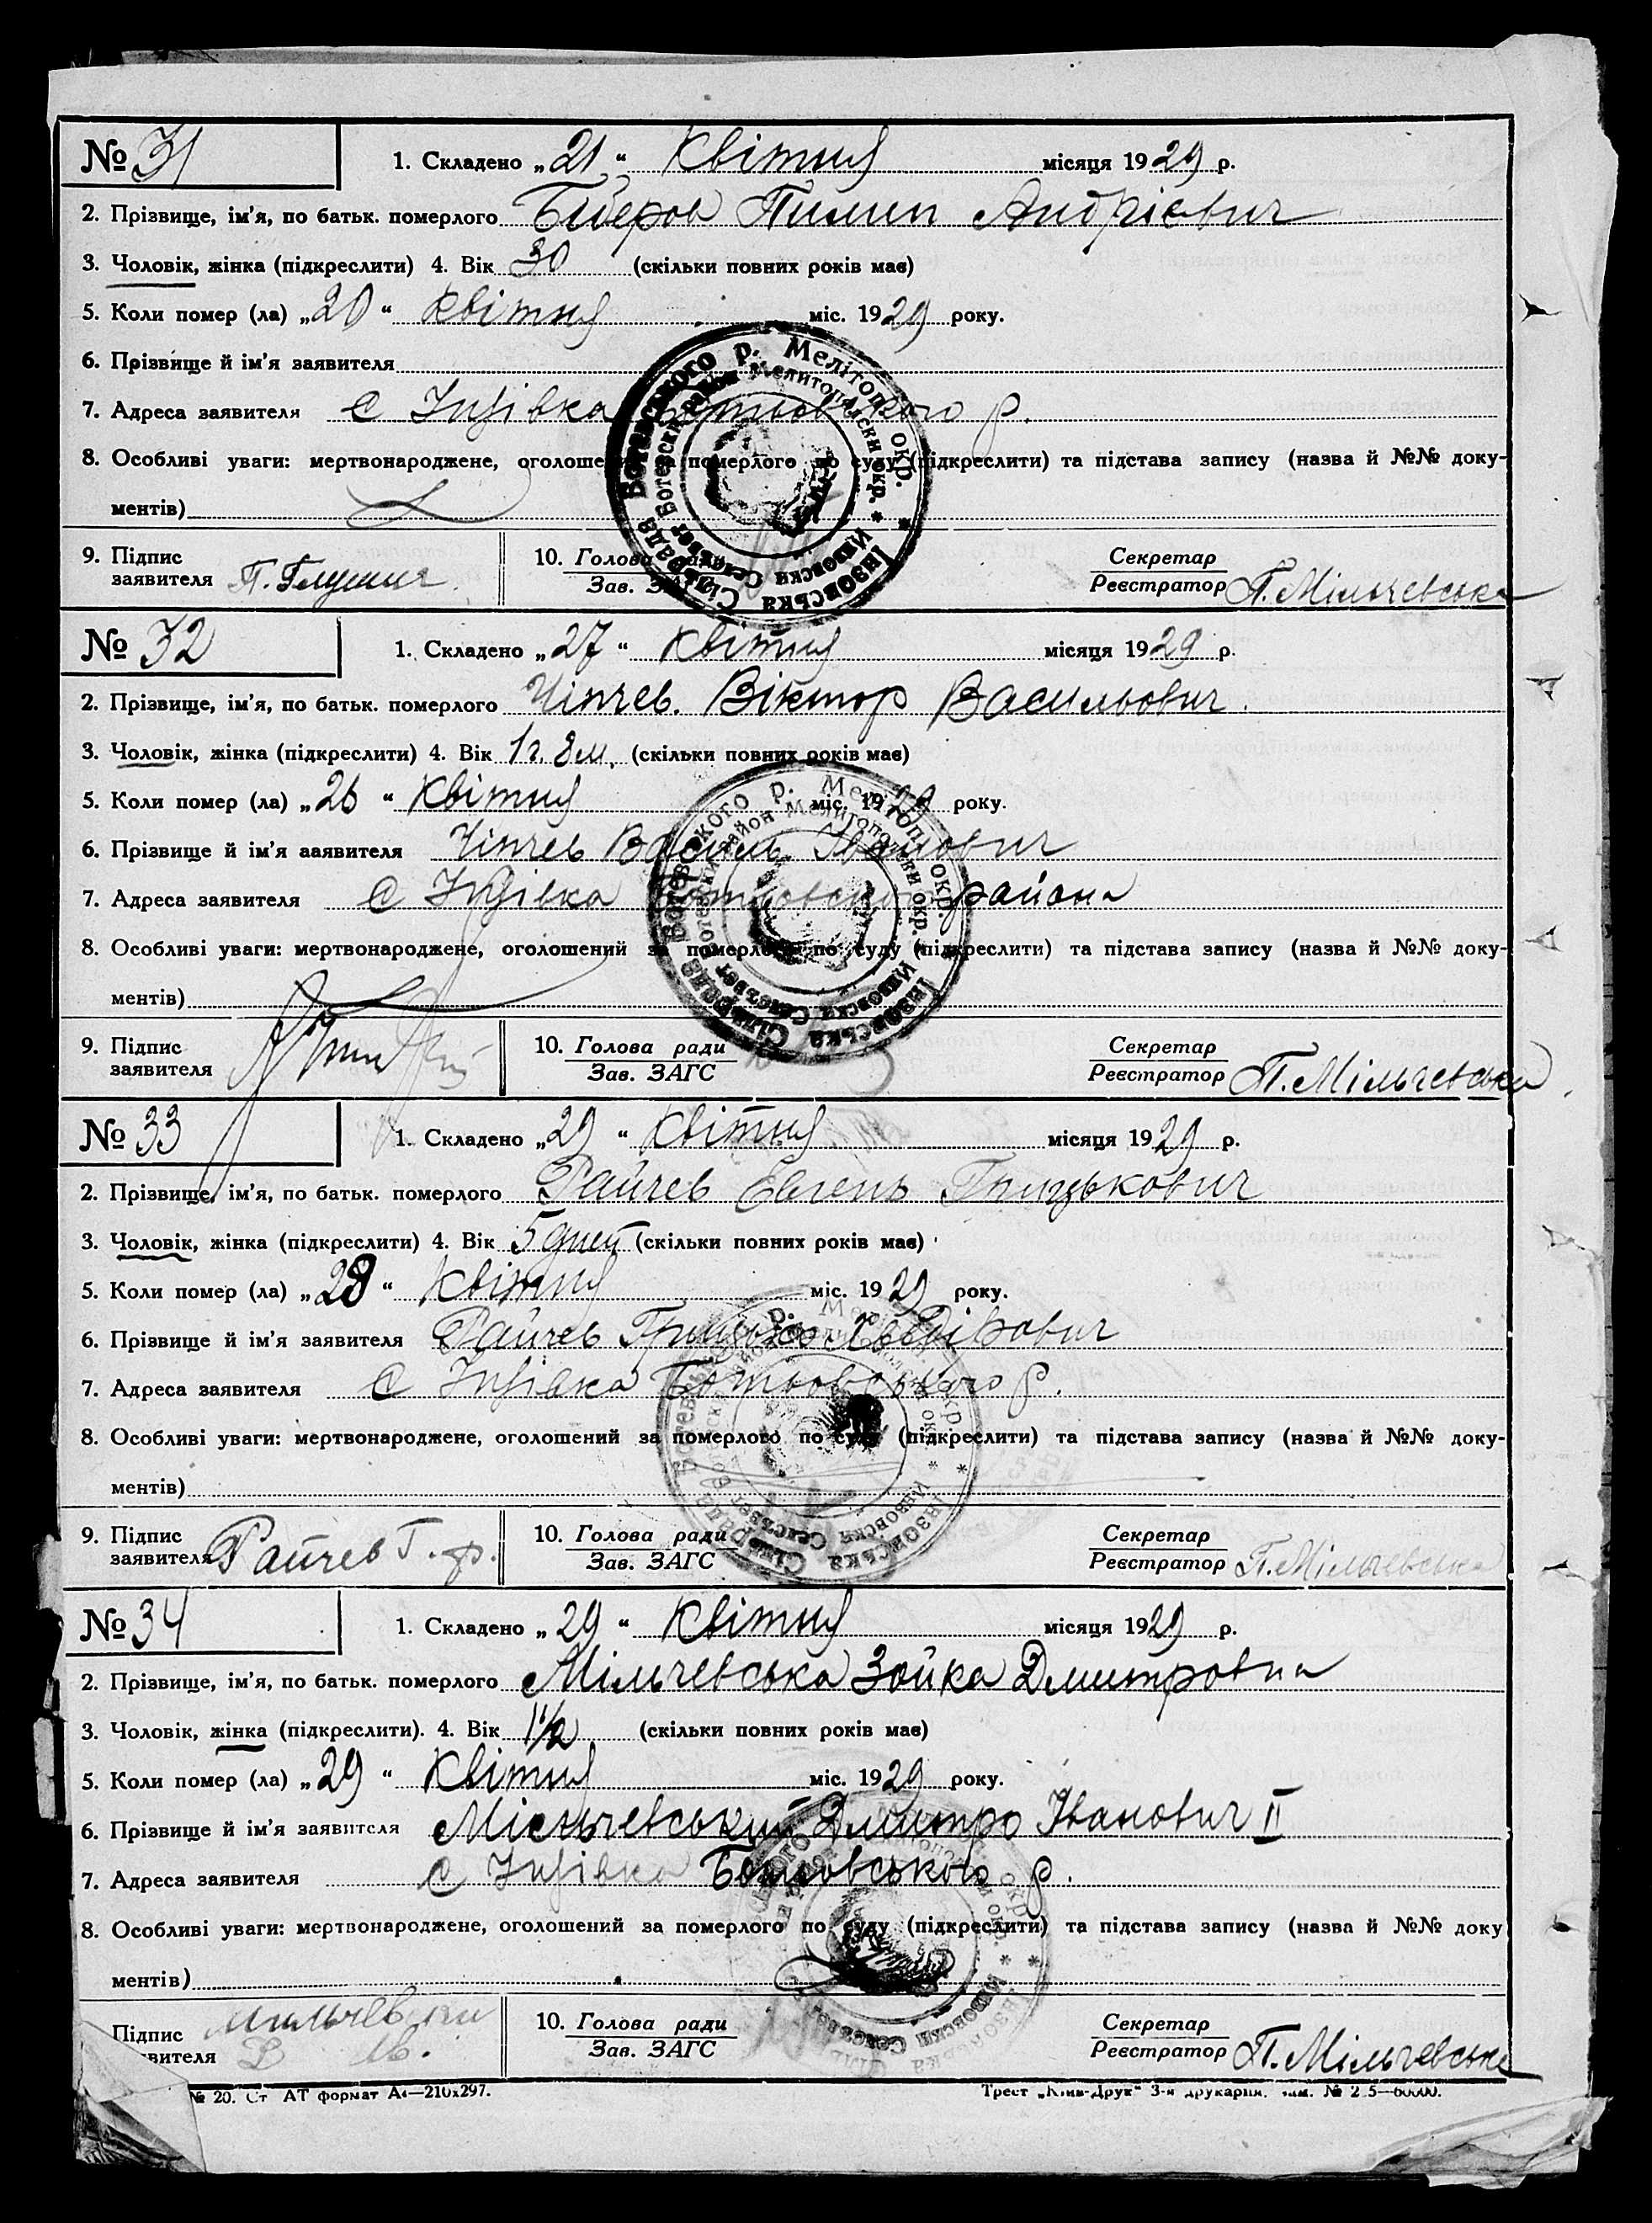 № 31 1. Складено „21“ Квітня місяця 1929 р.
2. Прізвище, ім'я, по батьк. померлого Пилип Андрієвич
3. Чоловік, жінка (підкреслити) 4. Вік 30 (скільки повних років має)
5. Коли помер (ла) „20“ Квітня міс. 1929 року.
6. Прізвище й ім'я заявителя
7. Адреса заявителя с Інзівка р.
8. Особливі уваги: мертвонароджене, оголошений за померлого по суду (підкреслити) та підстава запису (назва й №№ доку-
ментів)
9. Підпис заявителя П. 10. Голова ради Зав. ЗАГС Секретар Реєстратор П. Мільчевська
Інзовська Сільрада Ботевського р. Мелітоп. окр.
Инзовски Селсъвет Ботевски район Мелитополски окр.
№ 32 1. Складено „27“ Квітня місяця 1929 р.
2. Прізвище, ім'я, по батьк. померлого Чіпчев. Віктор Васильович.
3. Чоловік, жінка (підкреслити) 4. Вік 1г. 8м. (скільки повних років має)
5. Коли помер (ла) „26“ Квітня міс. 1929 року.
6. Прізвище й ім'я заявителя Чіпчев Василь Іванович
7. Адреса заявителя с Інзівка Ботьовського района
8. Особливі уваги: мертвонароджене, оголошений за померлого по суду (підкреслити) та підстава запису (назва й №№ доку-
ментів)
9. Підпис заявителя 10. Голова ради Зав. ЗАГС Секретар Реєстратор П. Мільчевська
№ 33 1. Складено „29“ Квітня місяця 1929 р.
2. Прізвище, ім'я, по батьк. померлого Райчев Евгень Грицькович
3. Чоловік, жінка (підкреслити) 4. Вік 5 дней (скільки повних років має)
5. Коли помер (ла) „28“ Квітня міс. 1929 року.
6. Прізвище й ім'я заявителя Райчев Грицько
7. Адреса заявителя с Інзівка Ботьовського р.
8. Особливі уваги: мертвонароджене, оголошений за померлого по суду (підкреслити) та підстава запису (назва й №№ доку-
ментів)
9. Підпис заявителя Райчев Г. ф. 10. Голова ради Зав. ЗАГС Секретар Реєстратор П. Мільчевська
№ 34 1. Складено „29“ Квітня місяця 1929 р.
2. Прізвище, ім'я, по батьк. померлого Мільчевська Зойка Дмитровна
3. Чоловік, жінка (підкреслити). 4. Вік 1½ (скільки повних років має)
5. Коли помер (ла) „29“ Квітня міс. 1929 року.
6. Прізвище й ім'я заявителя Мільчевський Дмитро Іванович II
7. Адреса заявителя с Інзівка Ботьовського р.
8. Особливі уваги: мертвонароджене, оголошений за померлого по суду (підкреслити) та підстава запису (назва й №№ доку
ментів)
Підпис вителя 10. Голова ради Зав. ЗАГС Секретар Реєстратор П. Мільчевська
№ 20. Ст АТ формат А4—210x297. Трест „Київ-Друк“ 3-я друкарня.